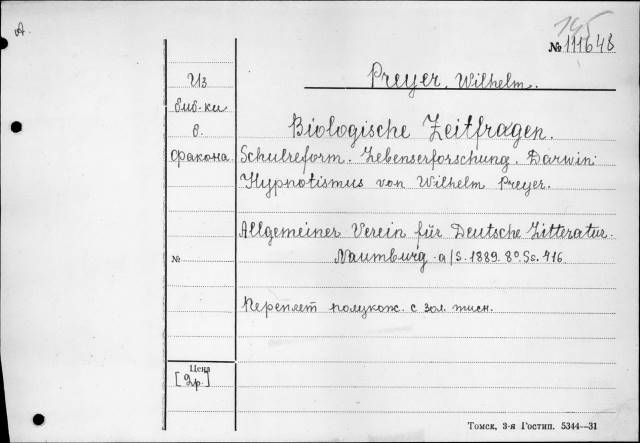 А
145
№ 111648
Preyer, Wilhelm.
Из
библ-ки
б.
Фракона.
Biologische Zeitfragen.
Schulreform. Lebenserforschung. Darwin.
Hypnotismus von Wilhelm Preyer.
Allgemeiner Verein für Deutsche Litteratur.
Naumburg a/S. 1889. 8º. Ss. 416
№
Переплет полукож. с зол. тисн.
Цена
[2р.]
Томск, 3-я Гостип. 5344—31